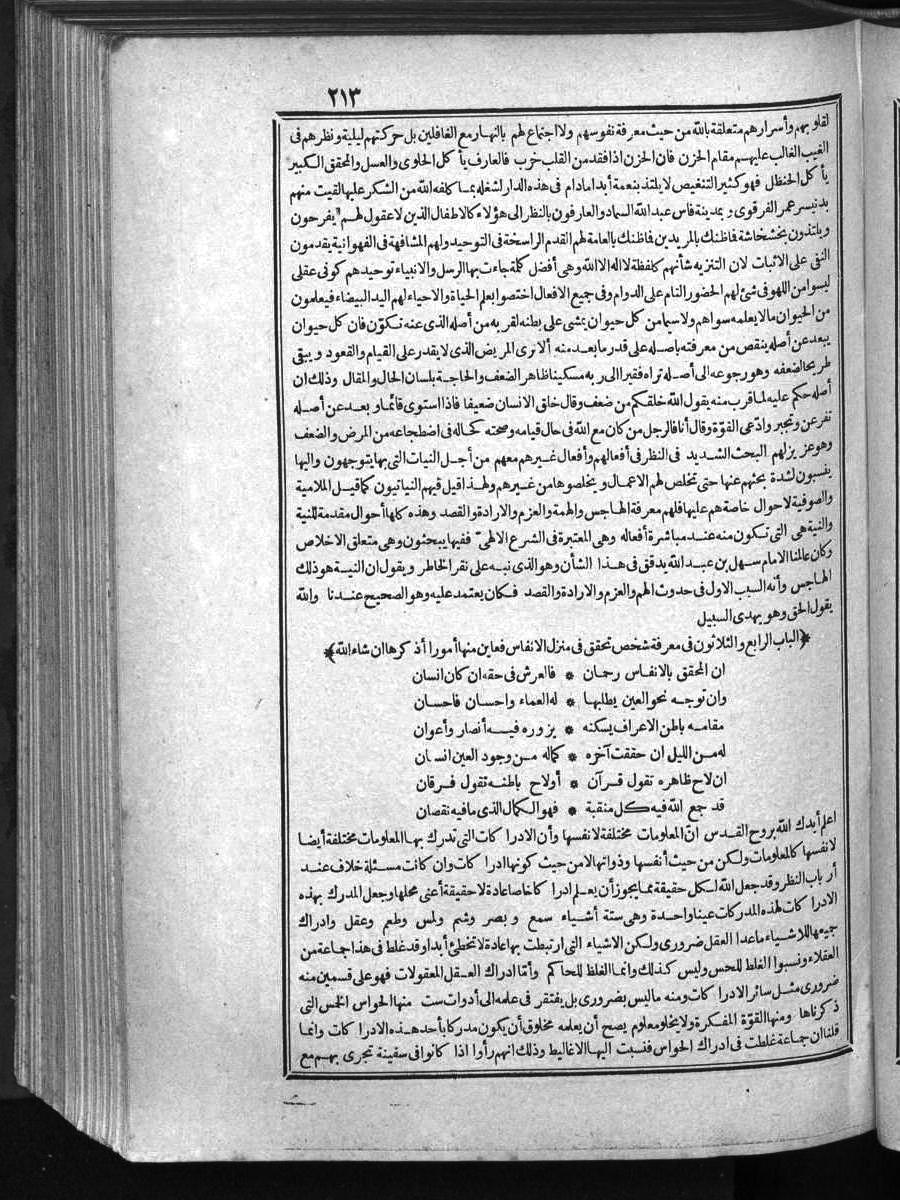 ٢١٣
لقلوبهم وأسرارهم متعلقة بالله من حيث معرفة نفوسهم ولا اجتماع لهم بالنهار مع الغافلين بل حركتهم ليلية ونظرهم فى
الغيب الغالب عليهم مقام الحزن فان الحزن اذا فقد من القلب خرب فالعارف يأكل الحلوى والعسل والمحقق الكبير
يأكل الحنظل فهو كثير التنغيص لا يلتذ بنعمة أبدا مادام فى هذه الدار لشغله بما كلفه الله من الشكر عليها لقيت منهم
بدنيسر عمر الفرقوى وبمدينة فاس عبد الله السماد والعارفون بالنظر الى هؤلاء كالاطفال الذين لا عقول لهم يفرحون
ويلتذون بخشخاشة فاظنك بالمريدين فاظنك بالعامة لهم القدم الراسخة فى التوحيد ولهم المشافهة فى الفهوانية يقدمون
النفى على الاثبات لان التنزيه شأنهم كلفظة لا اله الا الله وهى أفضل كلمة جاءت بها الرسل والانبياء توحيدهم كونى عقلى
ليسوا من اللهو فى شئ لهم الحضور التام على الدوام وفى جميع الافعال اختصوا بعلم الحياة والاحياء لهم اليد البيضاء فيعلمون
من الحيوان ما لا يعلمه سواهم ولا سيما من كل حيوان يمشى على بطنه لقربه من أصله الذى عنه تكوّن فان كل حيوان
يبعد عن أصله ينقص من معرفته باصله على قدر ما بعد منه ألا ترى المريض الذى لا يقدر على القيام والقعود ويبقى
طريحا لضعفه وهو رجوعه الى أصله تراه فقيرا الى ربه مسكينا ظاهر الضعف والحاجة بلسان الحال والمقال وذلك ان
أصله حكم عليه لما قرب منه يقول الله خلقكم من ضعف وقال خلق الانسان ضعيفا فاذا استوى قائما وبعد عن أصله
تفرعن وتجبر وادّعى القوّة وقال أنا فالرجل من كان مع الله فى حال قيامه وصحته كحاله فى اضطجاعه من المرض والضعف
وهو عزيز لهم البحث الشديد فى النظر فى أفعالهم وأفعال غيرهم معهم من أجل النيات التى بها يتوجهون واليها
ينسبون لشدة بحثهم عنها حتى تخلص لهم الاعمال ويخلصوها من غيرهم ولهذا قيل فيهم النياتيون كما قيل الملامية
والصوفية لاحوال خاصة هم عليها فلهم معرفة الهاجس والهمة والعزم والارادة والقصد وهذه كلها أحوال مقدمة للنية
والنية هى التى تكون منه عند مباشرة أفعاله وهى المعتبرة فى الشرع الالهىّ ففيها يبحثون وهى متعلق الاخلاص
وكان عالمنا الامام سهل بن عبد الله يدقق فى هذا الشأن وهو الذى نبه على نقر الخاطر ويقول ان النية هو ذلك
الهاجس وأنه السبب الاول فى حدوث الهم والعزم والارادة والقصد فكان يعتمد عليه وهو الصحيح عندنا والله
يقول الحق وهو يهدى السبيل
﴿الباب الرابع والثلاثون فى معرفة شخص تحقق فى منزل الانفاس فعاين منها أمورا أذكرها ان شاء الله﴾
ان المحقق بالانفاس رحمان * فالعرش فى حقه ان كان انسان
وان توجه نحو العين يطلبها * له العماء واحسان فاحسان
مقامه باطن الاعراف يسكنه * يزوره فيه أنصار وأعوان
له من الليل ان حققت آخره * كما له من وجود العين انسان
ان لاح ظاهره تقول قرآن * أو لاح باطنه تقول فرقان
قد جمع الله فيه كل منقبة * فهو الكمال الذى ما فيه نقصان
اعلم أيدك الله بروح القدس انّ المعلومات مختلفة لانفسها وأن الادراكات التى تدرك بها المعلومات مختلفة أيضا
لانفسها كالمعلومات ولكن من حيث أنفسها وذواتها لا من حيث كونها ادراكات وان كانت مسئلة خلاف عند
أرباب النظر وقد جعل الله لكل حقيقة مما يجوز أن يعلم ادراكا خاصا عادة لا حقيقة أعنى محلها وجعل المدرك بهذه
الادراكات لهذه المدركات عينا واحدة وهى ستة أشياء سمع وبصر وشم ولمس وطعم وعقل وادراك
جميعها للاشياء ما عدا العقل ضرورى ولكن الاشياء التى ارتبطت بها عادة لا تخطئ أبدا وقد غلط فى هذا جماعة من
العقلاء ونسبوا الغلط للحس وليس كذلك وانما الغلط للحاكم وأمّا ادراك العقل المعقولات فهو على قسمين منه
ضرورى مثل سائر الادراكات ومنه ما ليس بضرورى بل يفتقر فى علمه الى أدوات ست منها الحواس الخمس التى
ذكرناها ومنها القوّة المفكرة ولا يخلو معلوم يصح أن يعلمه مخلوق أن يكون مدركا بأحد هذه الادراكات وانما
قلنا ان جماعة غلطت فى ادراك الحواس فنسبت اليها الاغاليط وذلك انهم رأوا اذا كانوا فى سفينة تجرى بهم مع